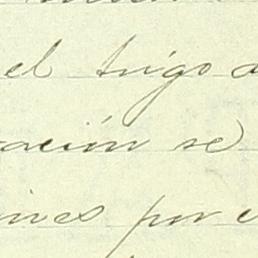 el trigo a
ación se
ines por e